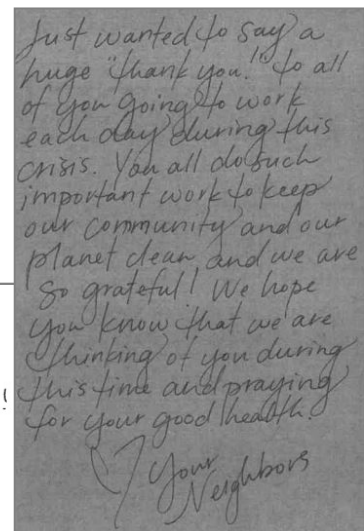 Just wanted to say a
huge "thank you!" to all
of you going to work
each day during this
crisis. You all do such
important work to keep
our community and our
planet clean, and we are
so grateful! We hope
you know that we are
thinking of you during
this time and praying
for your good health.
♡ Your
Neighbors